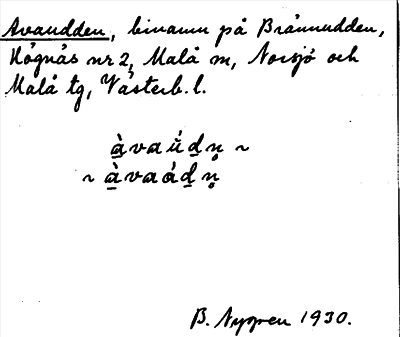 Avaudden, binamn på Brännudden,
Högnäs nr 2, Malå sn, Norsjö och
Malå tg, Västerb. l.
à̱vaǘḏn̥ ~
~ à̱vaáḏn̥
B. Nygren 1930.